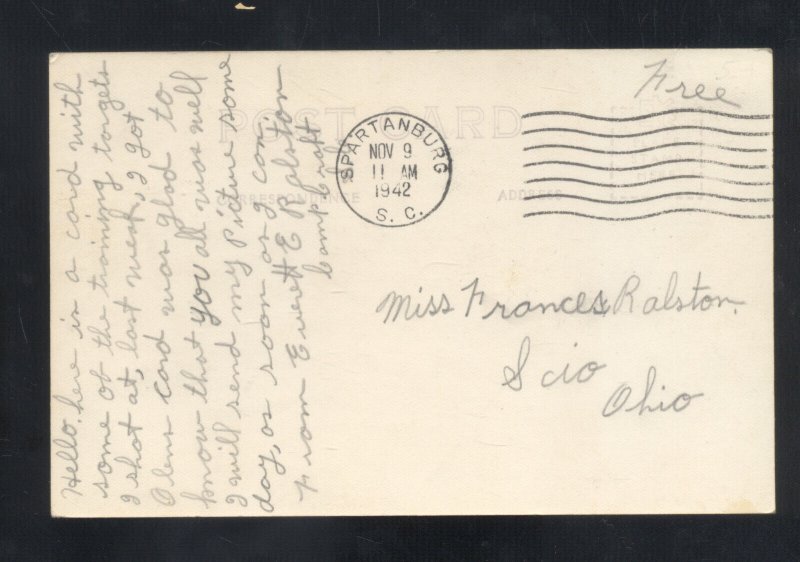 Hello, here is a card with
some of the training targets
I shot at, last week, I got
Olens card was glad to
know that you all was well
I will send my Picture some
day, as soon as I can
From Everett E Ralston
Camp Croft
POST CARD
CORRESPONDENCE
ADDRESS
SPARTANBURG
NOV 9
11 AM
1942
S. C.
Free
Miss Frances Ralston.
Scio
Ohio